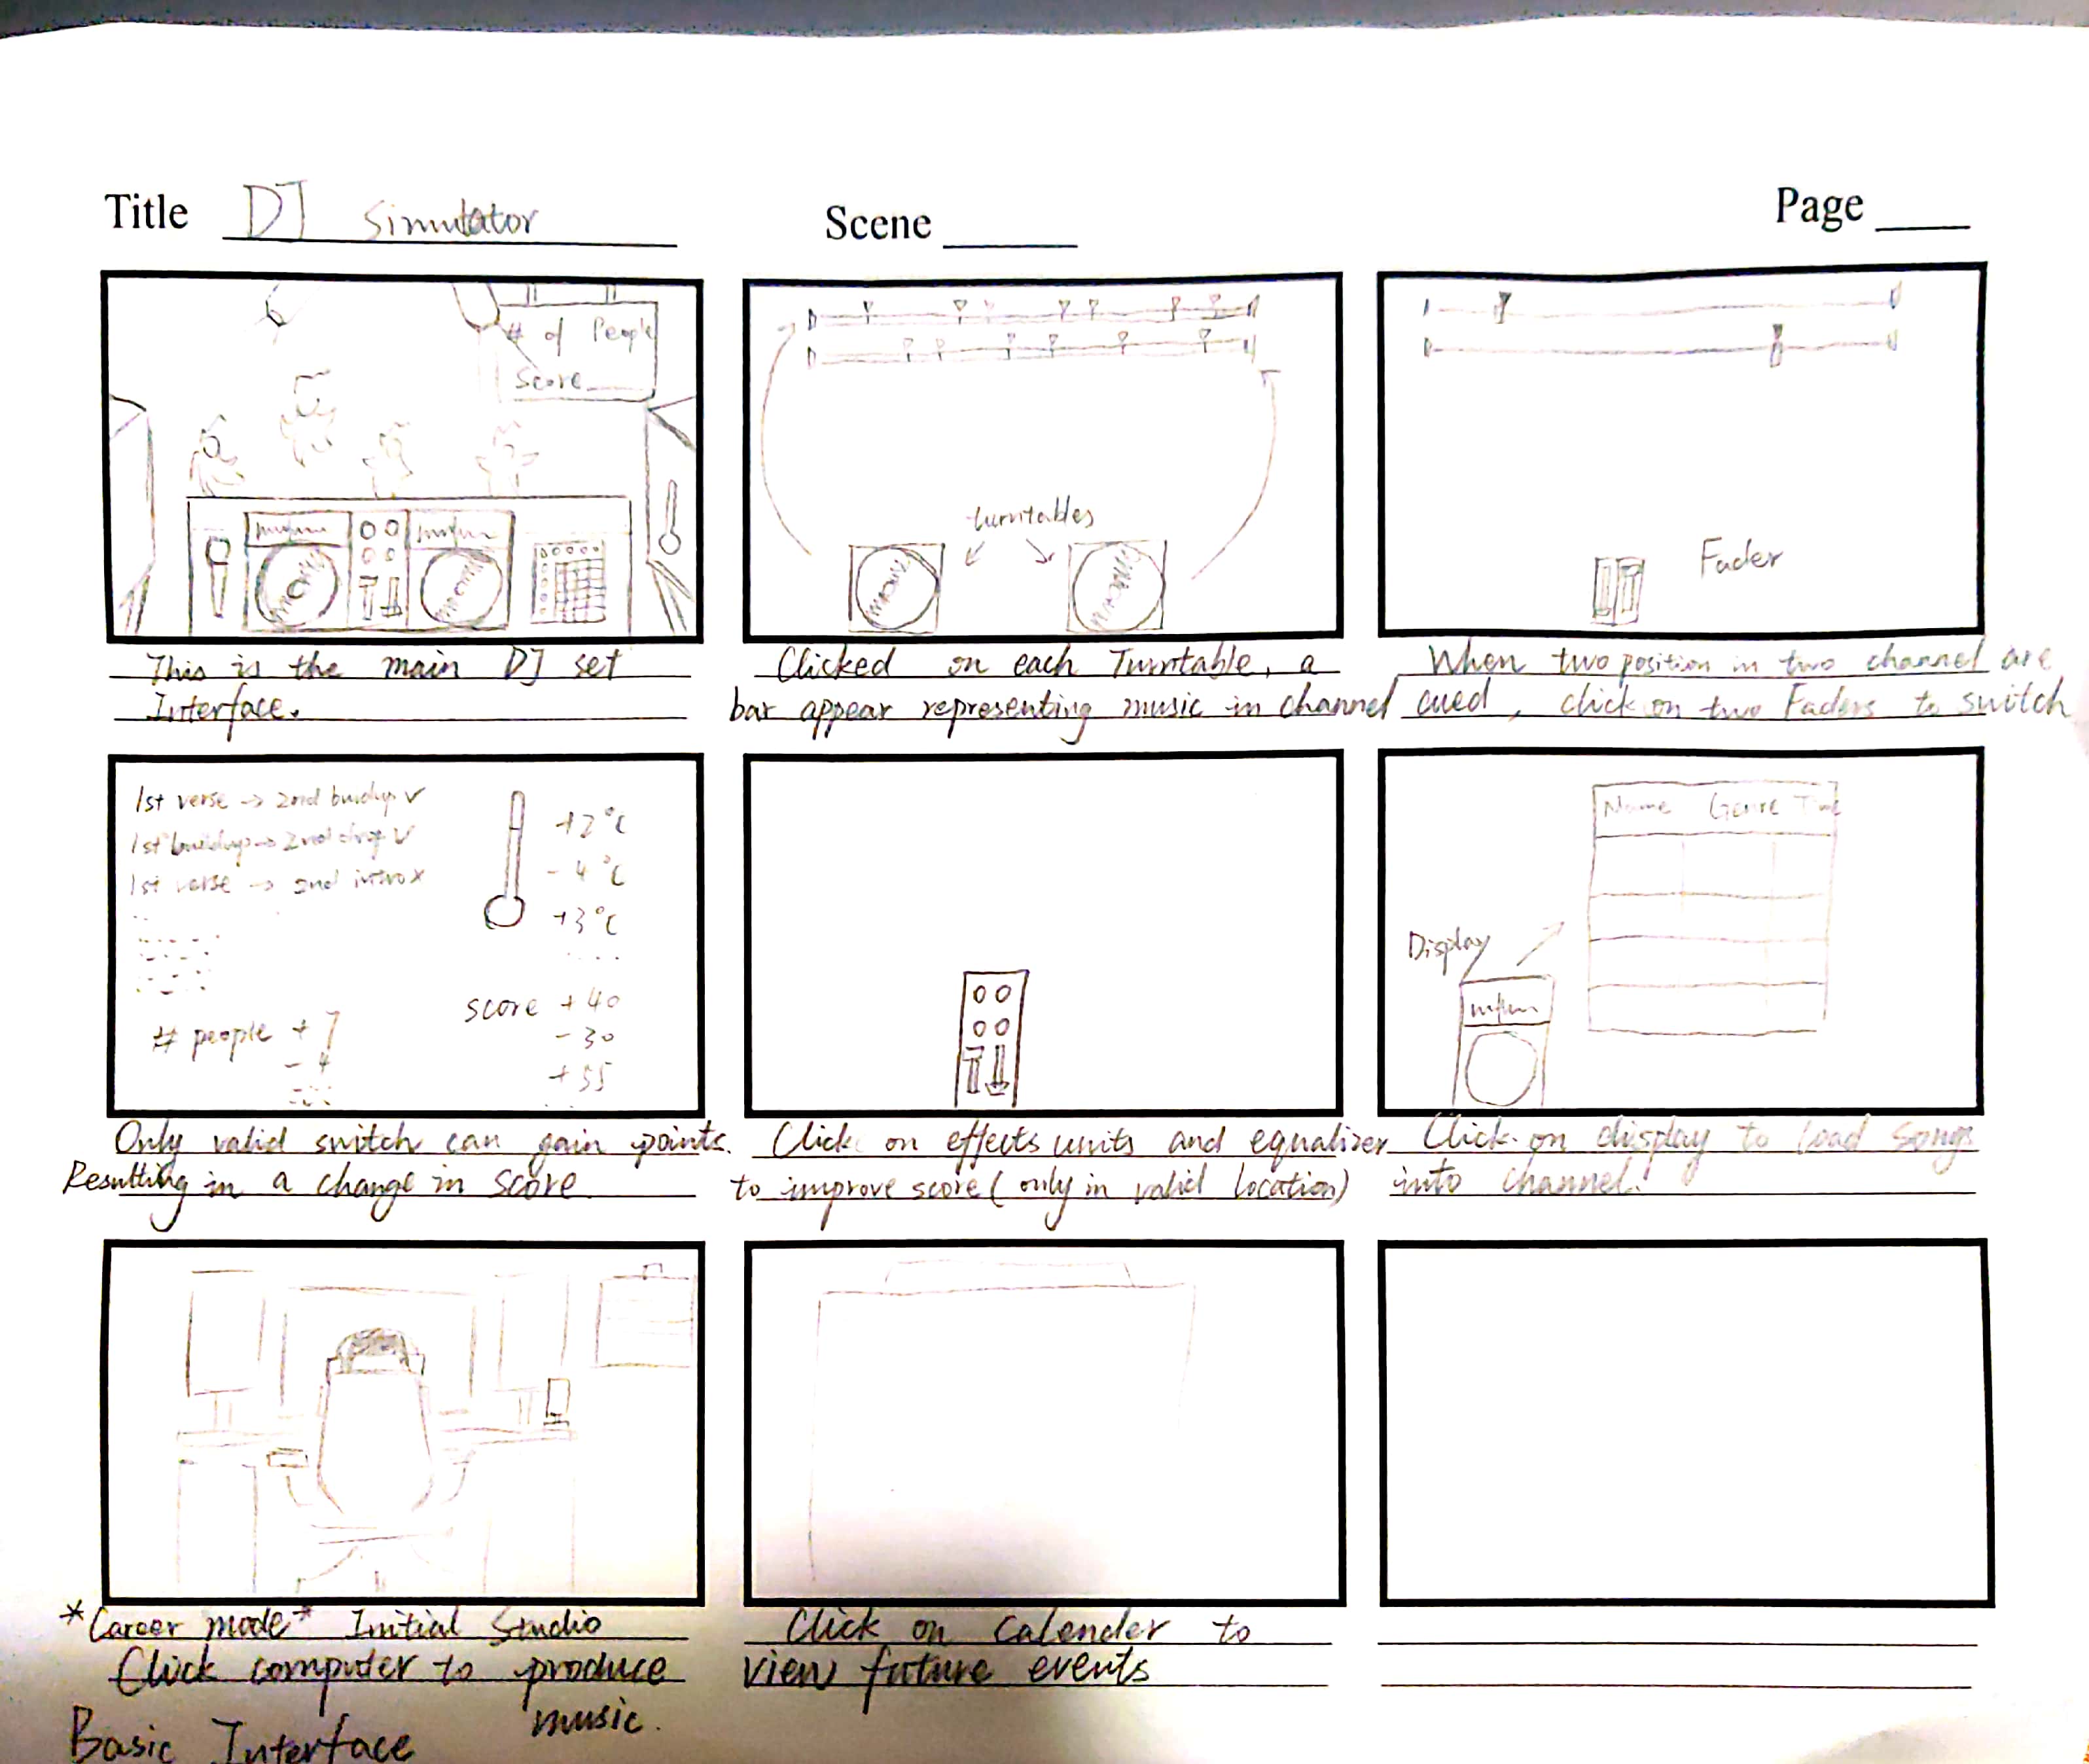 Title DJ Simulator
Scene
Page
# of People
Score
This is the main DJ set
Interface.
turntables
Clicked on each Turntable, a
bar appear representing music in channel
Fader
When two position in two channel are
cued, click on two Faders to switch
1st verse → 2nd buildup ✓
1st buildup → 2nd drop ✓
1st verse → 2nd intro x
+2°C
- 4°C
+3°C
# people + 7
- 4
score + 40
- 30
+ 55
Only valid switch can gain points.
Resulting in a change in score
Click on effects units and equalizer
to improve score (only in valid location)
Name Genre Time
Display
Click on display to load songs
into channel.
*Career mode* Initial Studio
Click computer to produce
music.
Click on Calender to
view future events
Basic Interface